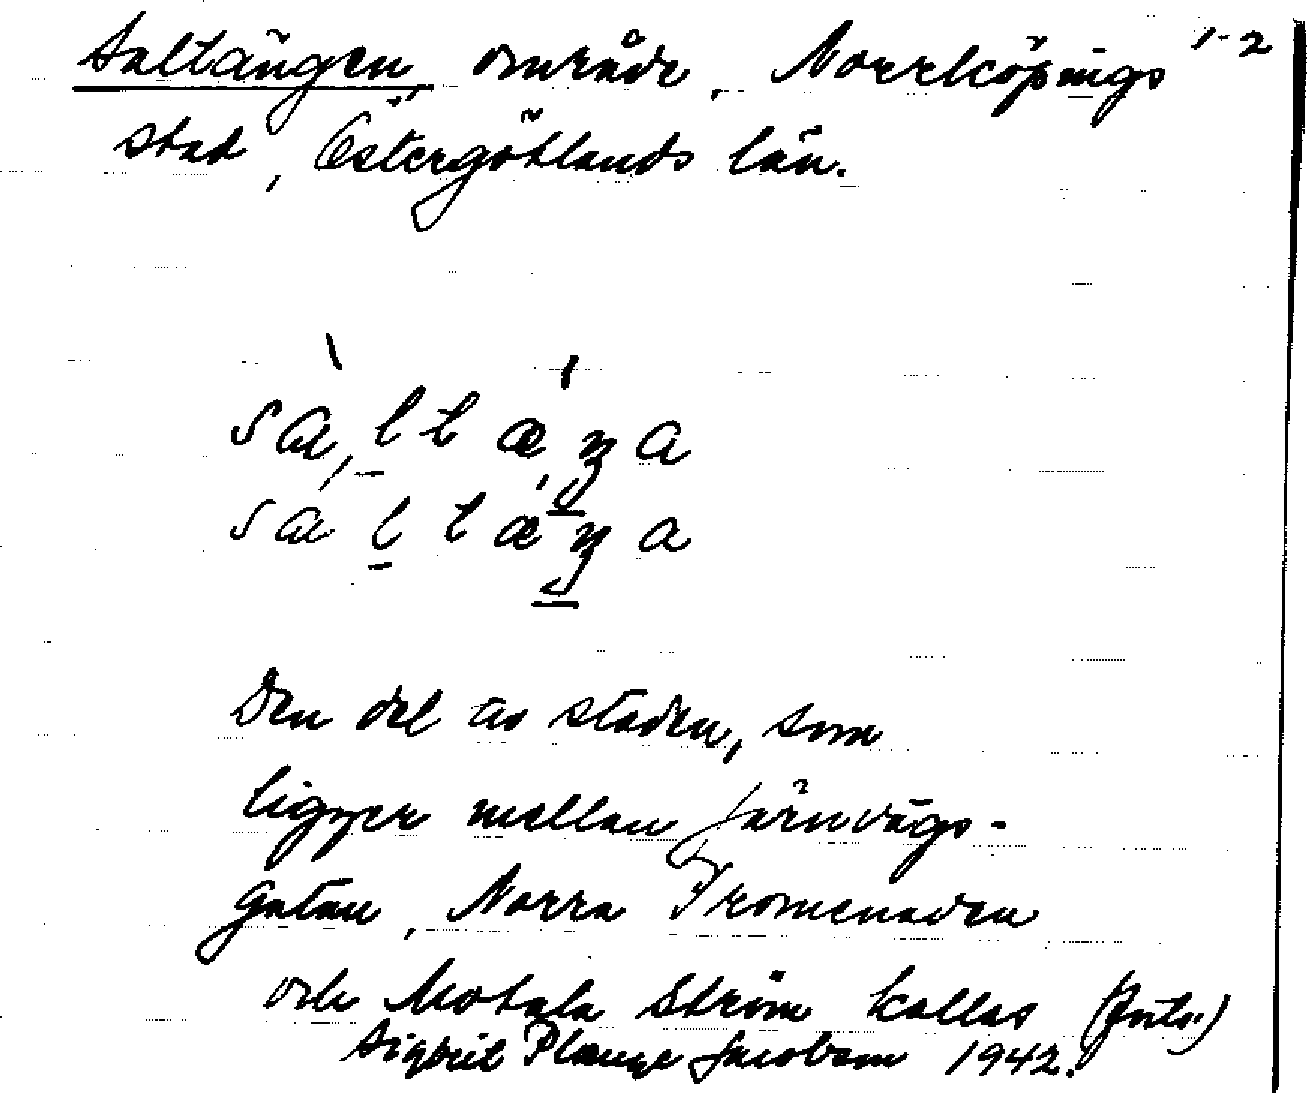 Saltängen, område, Norrköpings 1-2
stad, Östergötlands län.
sàltǽŋa
sáltǽŋa
Den del av staden, som
ligger mellan Järnvägs-
gatan, Norra Promenaden
och Motala Ström kallas (Intr.)
Sigurd Jacobson 1942.